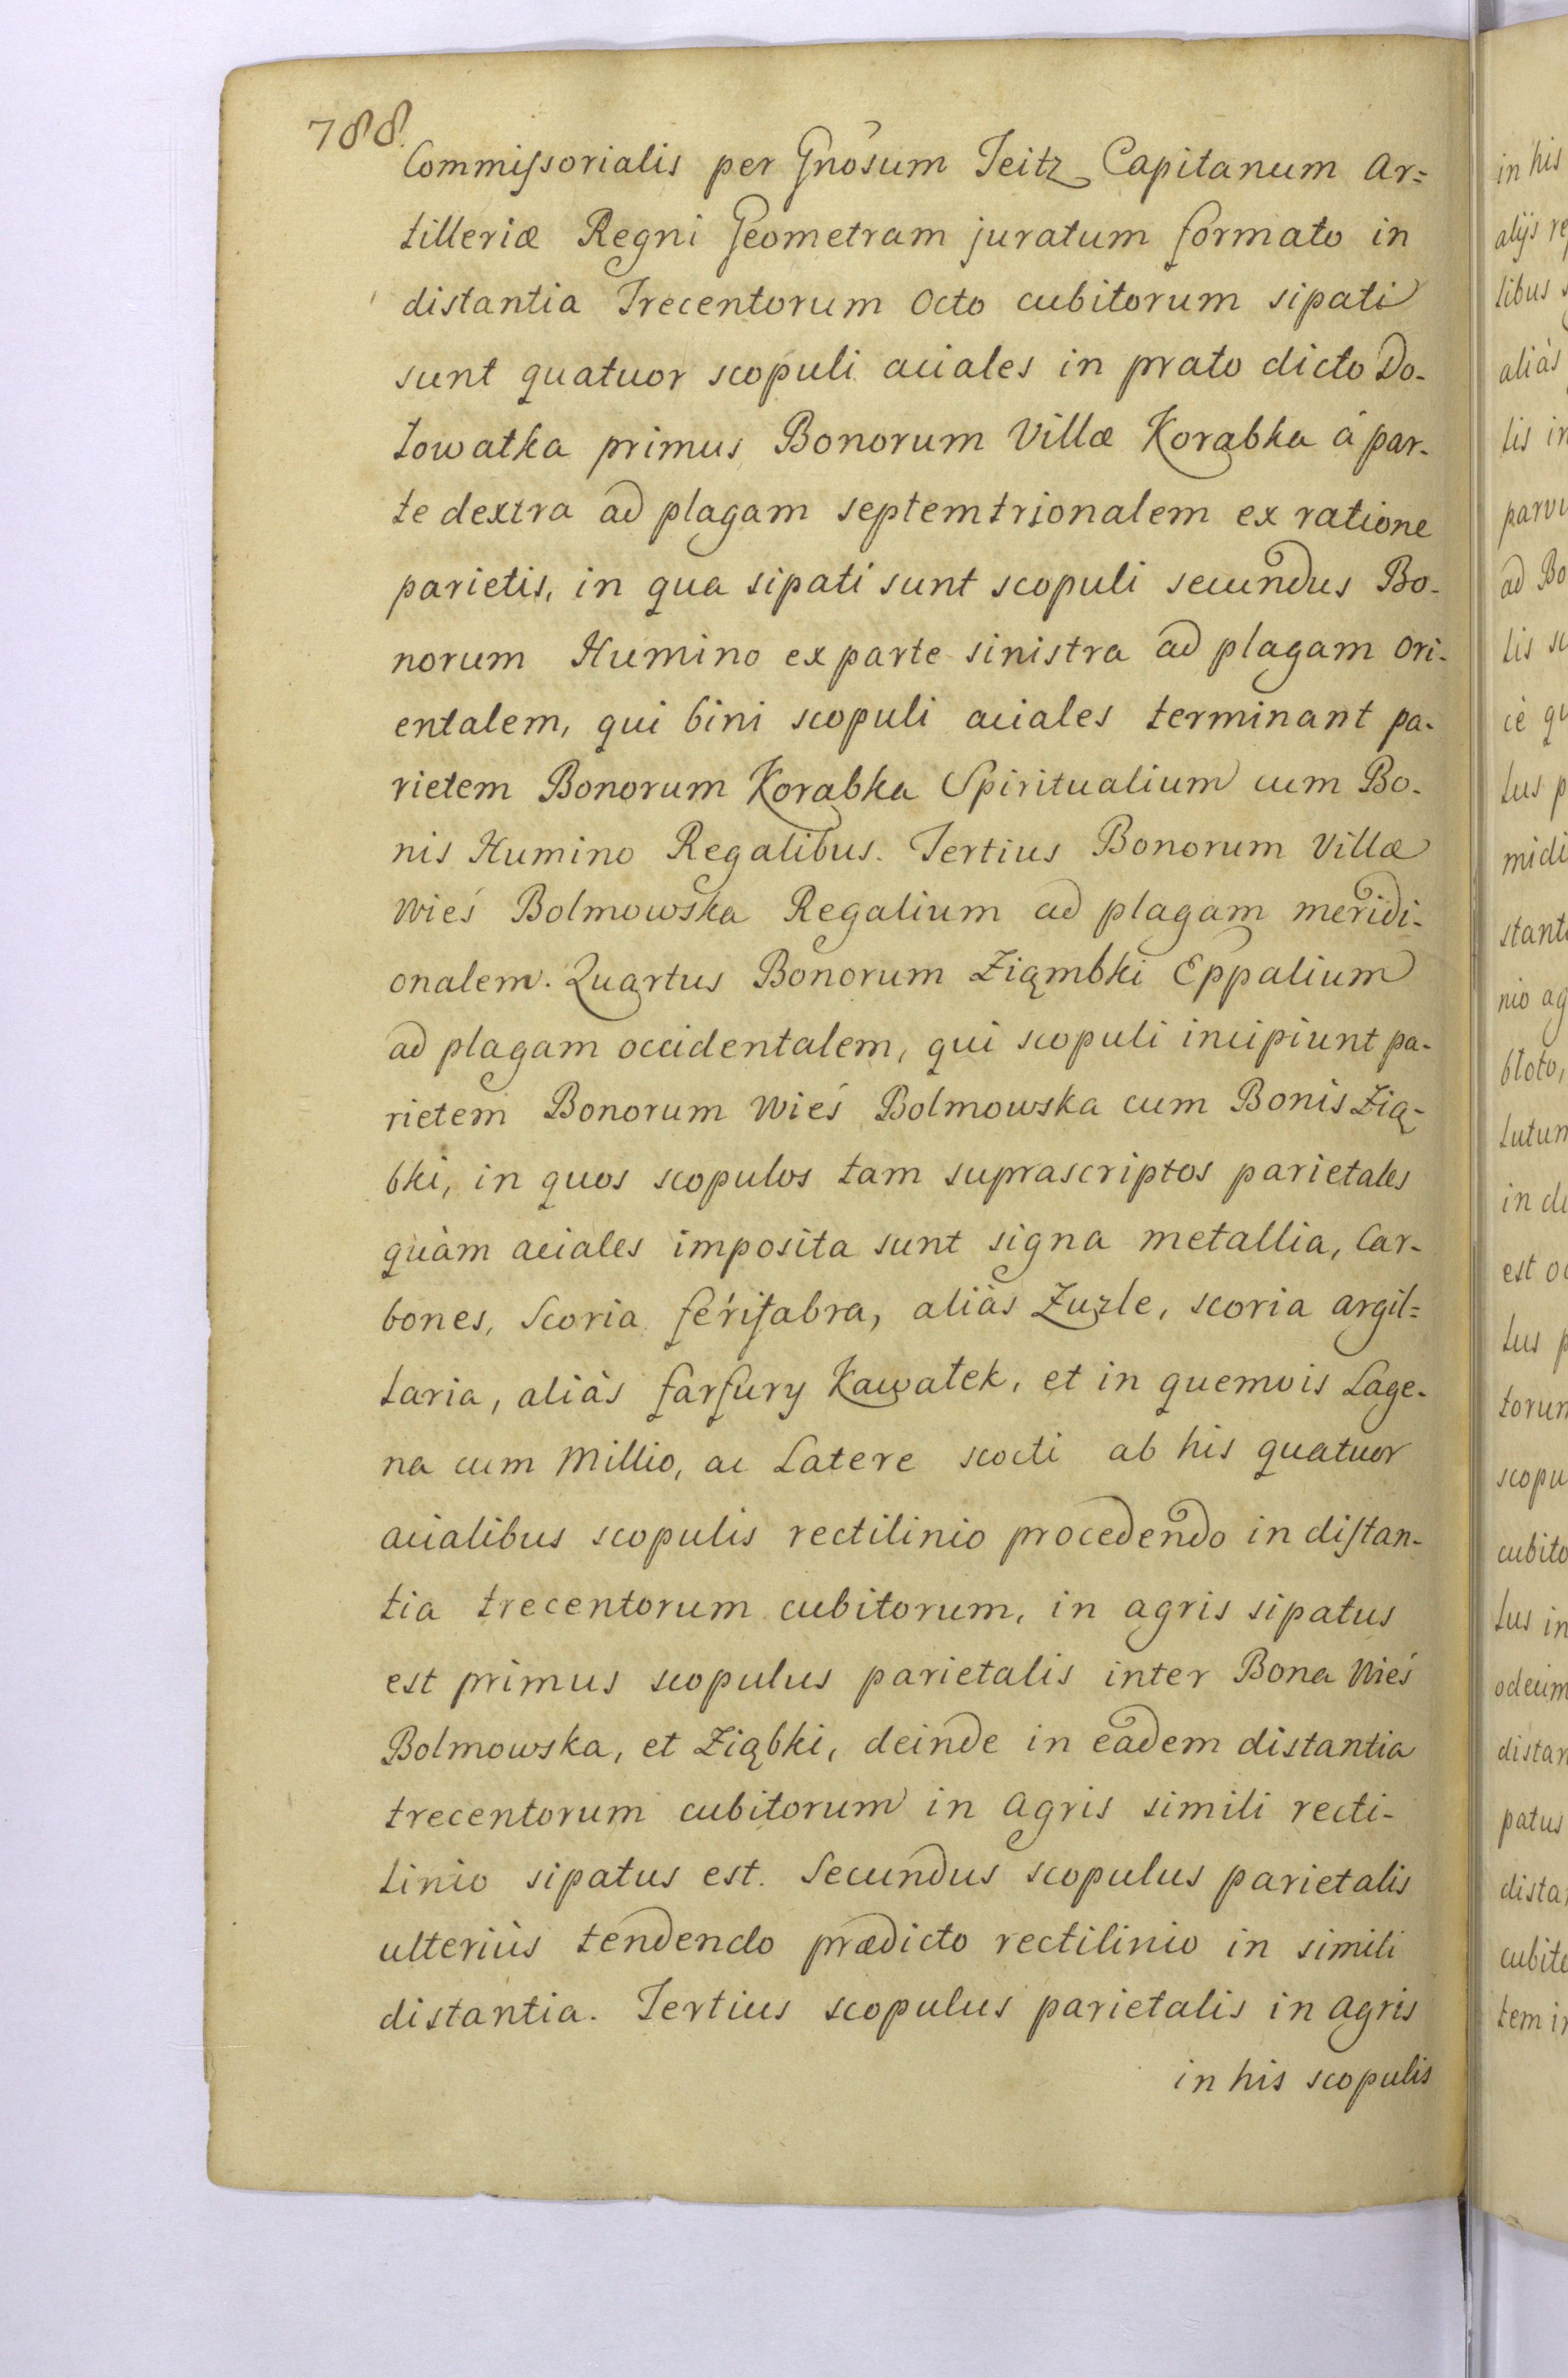 788.
Commissorialis per Gnosum Teitz Capitanum Ar=
tilleriæ Regni Geometram juratum formato in
distantia Trecentorum Octo cubitorum sipati
sunt quatuor scopuli aciales in prato dicto Do-
łowatka primus Bonorum Villæ Korabka á par-
te dextra ad plagam septemtrionalem ex ratione
parietis, in qua sipati sunt scopuli secundus Bo-
norum Humino ex parte sinistra ad plagam Ori-
entalem, qui bini scopuli aciales terminant pa-
rietem Bonorum Korabka Spiritualium cum Bo-
nis Humino Regalibus. Tertius Bonorum Villæ
Wieś Bolmowska Regalium ad plagam meridi-
onalem. Quartus Bonorum Ziąmbki Eppalium
ad plagam occidentalem, qui scopuli incipiunt pa-
rietem Bonorum Wieś Bolmowska cum Bonis Zią-
bki, in quos scopulos tam suprascriptos parietales
quàm aciales imposita sunt signa metallia, Car-
bones, Scoria ferifabra, aliàs Zuzle, scoria argil=
laria, aliàs farfury Kawałek, et in quemvis Lage-
na cum Millio, ac Latere scocti ab his quatuor
acialibus scopulis rectilinio procedendo in distan-
tia trecentorum cubitorum, in agris sipatus
est primus scopulus parietalis inter Bona Wieś
Bolmowska, et Ziąbki, deinde in eadem distantia
trecentorum cubitorum in Agris simili recti-
linio sipatus est. Secundus scopulus parietalis
ulteriùs tendendo prædicto rectilinio in simili
distantia. Tertius scopulus parietalis in Agris
in his scopulis
in his
alijs
libus
aliàs
lis in
ad Bo